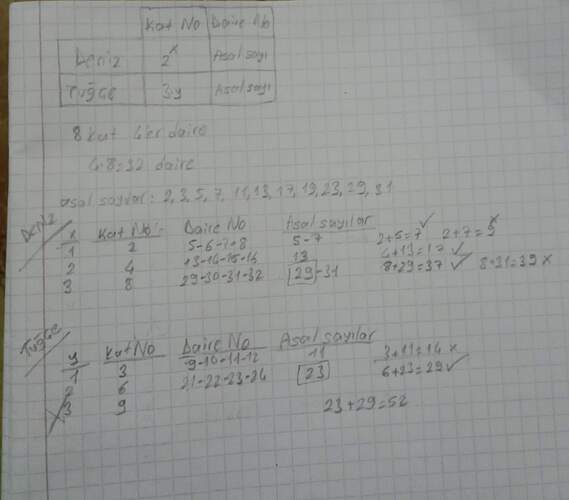 Kat No Daire No
Deniz 2ˣ Asal sayı
Tuğçe 3y Asal sayı
8 kat 4'er daire
4.8=32 daire
asal sayılar: 2,3,5,7,11,13,17,19,23,29,31
Deniz
x Kat No: Daire No Asal sayılar
1 2 5-6-7-8 5-7 2+5=7 ✓ 2+7=9 x
2 4 13-14-15-16 13 4+13=17 ✓
3 8 29-30-31-32 29-31 8+29=37 ✓ 8+31=39 x
Tuğçe
y Kat No Daire No Asal sayılar
1 3 9-10-11-12 11 3+11=14 x
2 6 21-22-23-24 23 6+23=29 ✓
3 9
23+29=52